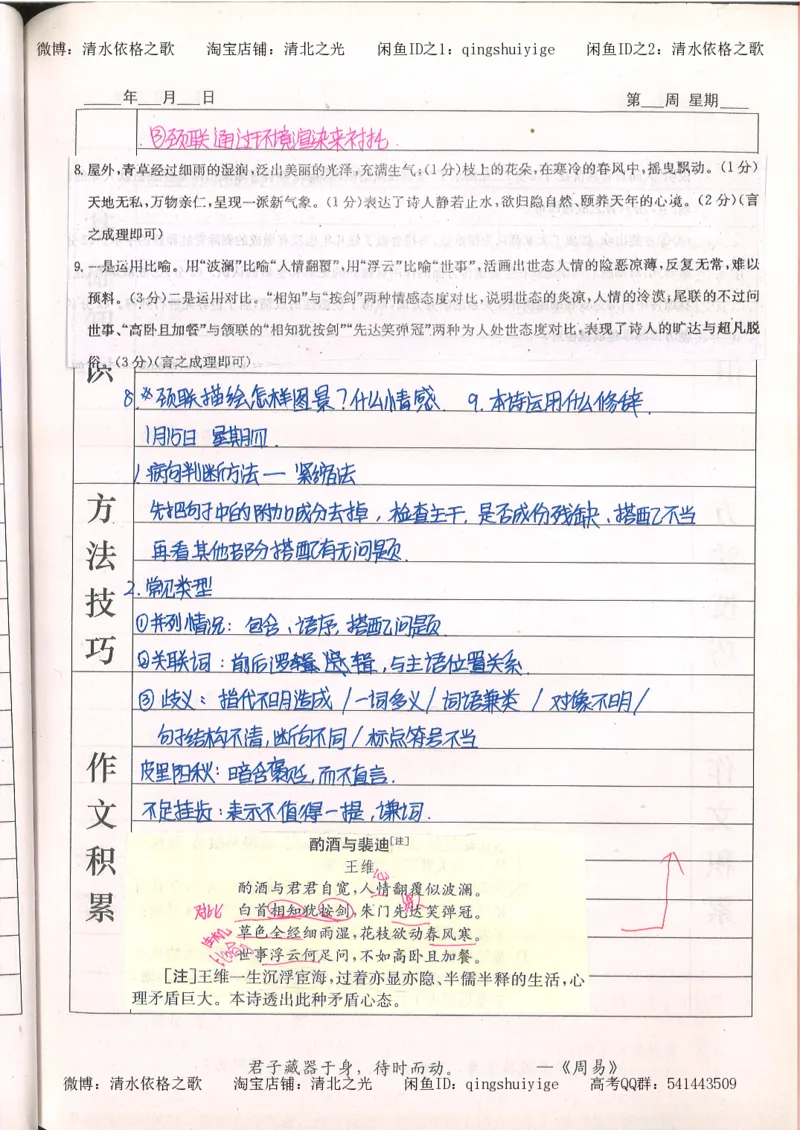 微博：清水依格之歌 淘宝店铺：清北之光 闲鱼ID之1：qingshuiyige 闲鱼ID之2：清水依格之歌
____年___月___日 第___周 星期____
③颈联通过环境渲染来衬托.
8. 屋外，青草经过细雨的湿润，泛出美丽的光泽，充满生气；(1分)枝上的花朵，在寒冷的春风中，摇曳飘动。(1分)
天地无私，万物亲仁，呈现一派新气象。(1分)表达了诗人静若止水，欲归隐自然、颐养天年的心境。(2分)(言
之成理即可)
9. 一是运用比喻。用“波澜”比喻“人情翻覆”，用“浮云”比喻“世事”，活画出世态人情的险恶凉薄，反复无常，难以
预料。(3分)二是运用对比。“相知”与“按剑”两种情感态度对比，说明世态的炎凉，人情的冷漠；尾联的不过问
世事、“高卧且加餐”与颔联的“相知犹按剑”“先达笑弹冠”两种为人处世态度对比，表现了诗人的旷达与超凡脱
俗。(3分)(言之成理即可)
识
8.※颈联描绘怎样图景？什么情感. 9. 本诗运用什么修辞.
1月15日 星期四.
1.病句判断方法一 紧缩法
方法技巧
先把句子中的附加成分去掉，检查主干，是否成份残缺、搭配不当
再看其他部分搭配有无问题.
2.常见类型
①并列情况：包含、语序，搭配问题.
②关联词：前后逻辑，与主语位置关系.
③歧义：指代不明造成/一词多义/词语兼类/对像不明/
句子结构不清，断句不同/标点符号不当
作文积累
皮里阳秋：暗含褒贬，而不直言.
不足挂齿：表示不值得一提，谦词.
酌酒与裴迪[注]
王维
酌酒与君君自宽，人情翻覆似波澜。
对比 白首相知犹按剑，朱门先达笑弹冠。
草色全经细雨湿，花枝欲动春风寒。
世事浮云何足问，不如高卧且加餐。
[注]王维一生沉浮宦海，过着亦显亦隐、半儒半释的生活，心
理矛盾巨大。本诗透出此种矛盾心态。
君子藏器于身，待时而动。 —《周易》
微博：清水依格之歌 淘宝店铺：清北之光 闲鱼ID：qingshuiyige 高考QQ群：541443509